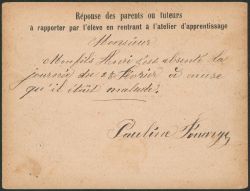 Réponse des parents ou tuteurs
à rapporter par l'élève en rentrant à l'atelier d'apprentissage
Monsieur
Mon fils Henri s'est absenté la
journée du 24 Février à cause
qu'il était malade.
Paulina